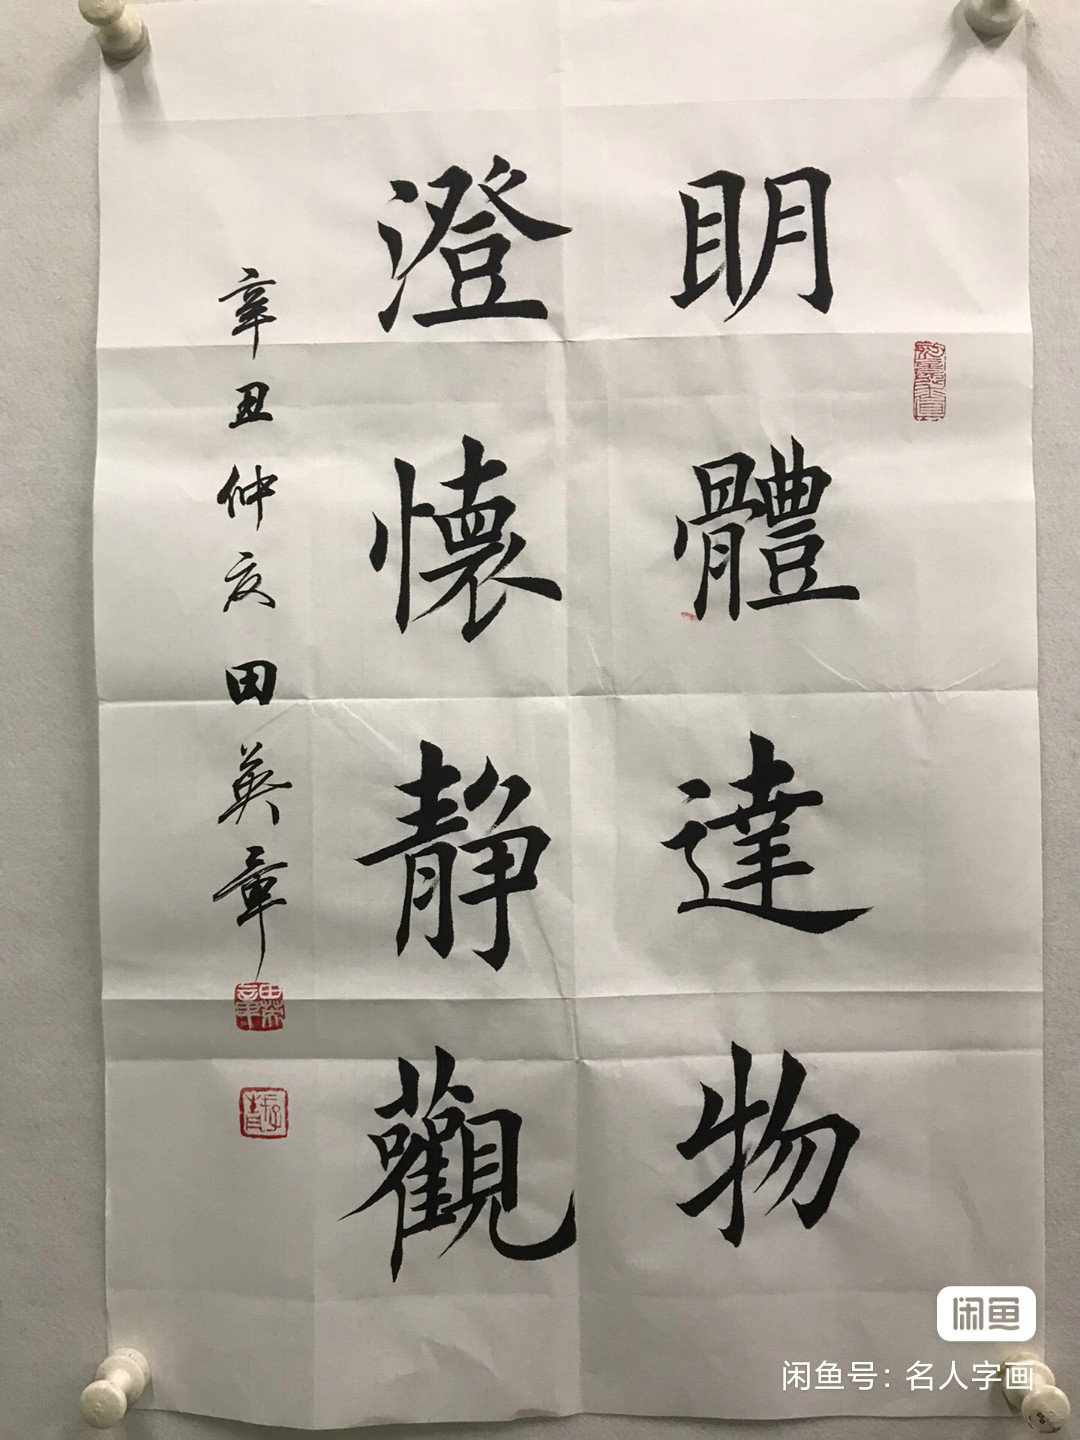 眀體達物
澄懷静觀
辛丑仲夏田英章
闲鱼
闲鱼号：名人字画